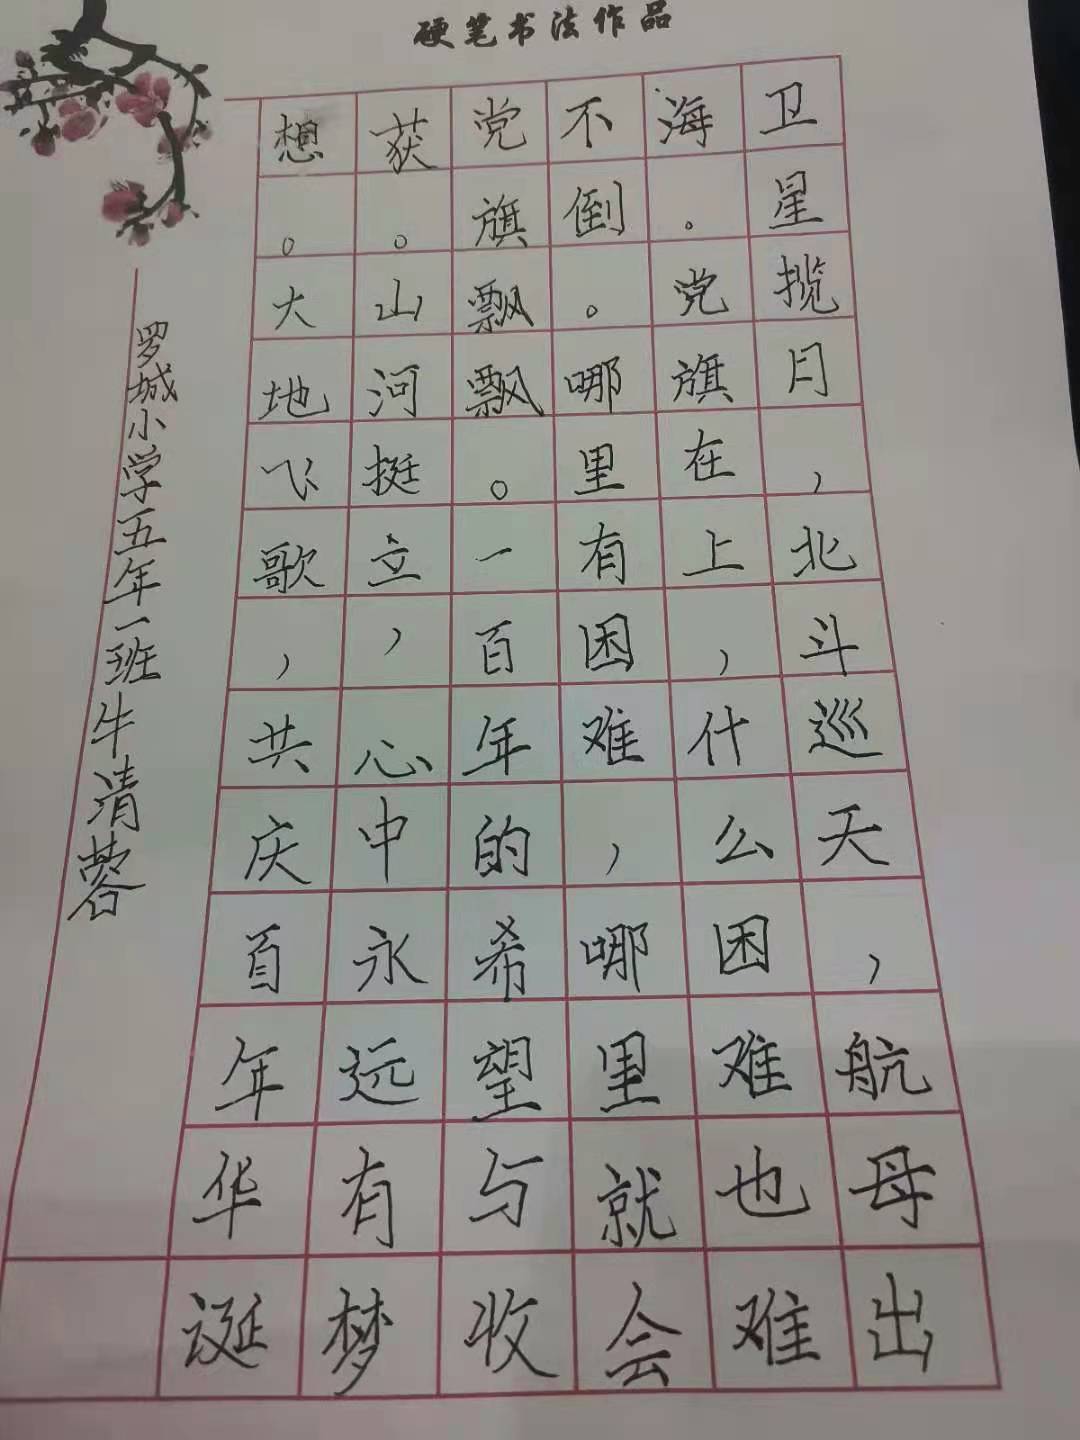 硬笔书法作品
卫星揽月，北斗巡天，航母出
海。党旗在上，什么困难也难
不倒。哪里有困难，哪里就会
党旗飘飘。一百年的希望与收
获。山河挺立，心中永远有梦
想。大地飞歌，共庆百年华诞
罗城小学五年一班牛清蓉